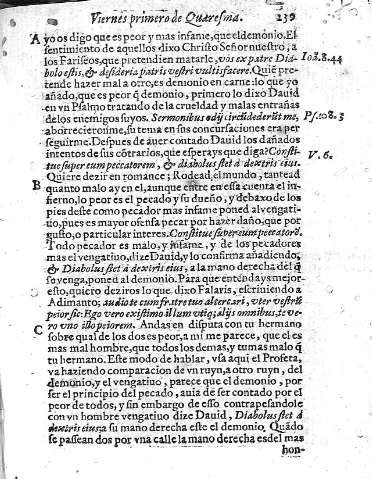 Viernes primero de Quaresma. 239
A yo os digo que es peor y mas infame, que el demonio. El
sentimiento de aquellos dixo Christo Señor nuestro, a
los Fariseos, que pretendien matarle, vos ex patre Dia- Ioã.8.44
bolo estis, & desideria patris vestri vultis facere. Quiẽ pre-
tende hazer mal a otro, es demonio en carne: lo que yo
añado, que es peor q̃ demonio, primero lo dixo Dauid
en vn Psalmo tratando de la crueldad y malas entrañas
de los enemigos suyos. Sermonibus odij circũdederũt me, Ps.108.3
aborrecieronme, su tema en sus concursaciones era per
seguirme. Despues de auer contado Dauid los dañados
intentos de sus cõtrarios, que esperays que diga? Consti- V. 6.
tue super eum peccatorem, & diabolus stet à dextris eius.
Quiere dezir en romance; Rodead, el mundo, tantead
B quanto malo ay en el, aunque entre en essa cuenta el in-
fierno, lo peor es el pecado y su dueño, y debaxo de los
pies deste como pecador mas infame poned al vengati-
uo, pues es mayor ofensa pecar por hazer daño, que por
gusto, o particular interes. Constitue super eum peccatorẽ.
Todo pecador es malo, y infame, y de los pecadores
mas el vengatiuo, dize Dauid, y lo confirma añadiendo;
& Diabolus stet à dextris eius, a la mano derecha del q̃
se venga, poned al demonio. Para que entendays mejor
esto, quiero deziros lo que dixo Falaris, escriuiendo a
Adimanto; audio te cum fratre tuo altercari, vter vestrũ
peior sit: Ego vero existimo illum vtiq; alijs omnibus, te ve-
ro vno illo peiorem. Andas en disputa con tu hermano
C sobre qual de los dos es peor, a mi me parece, que el es
mas mal hombre, que todos los demas, y tu mas malo q̃
tu hermano. Este modo de hablar, vsa aqui el Profeta,
va haziendo comparacion de vn ruyn, a otro ruyn, del
demonio, y el vengatiuo, parece que el demonio, por
ser el principio del pecado, auia de ser contado por el
peor de todos, y sin embargo de esso contrapesandole
con vn hombre vengatiuo dize Dauid, Diabolus stet à
dextris eius: a su mano derecha este el demonio. Quãdo
se passean dos por vna calle la mano derecha es del mas
hon-